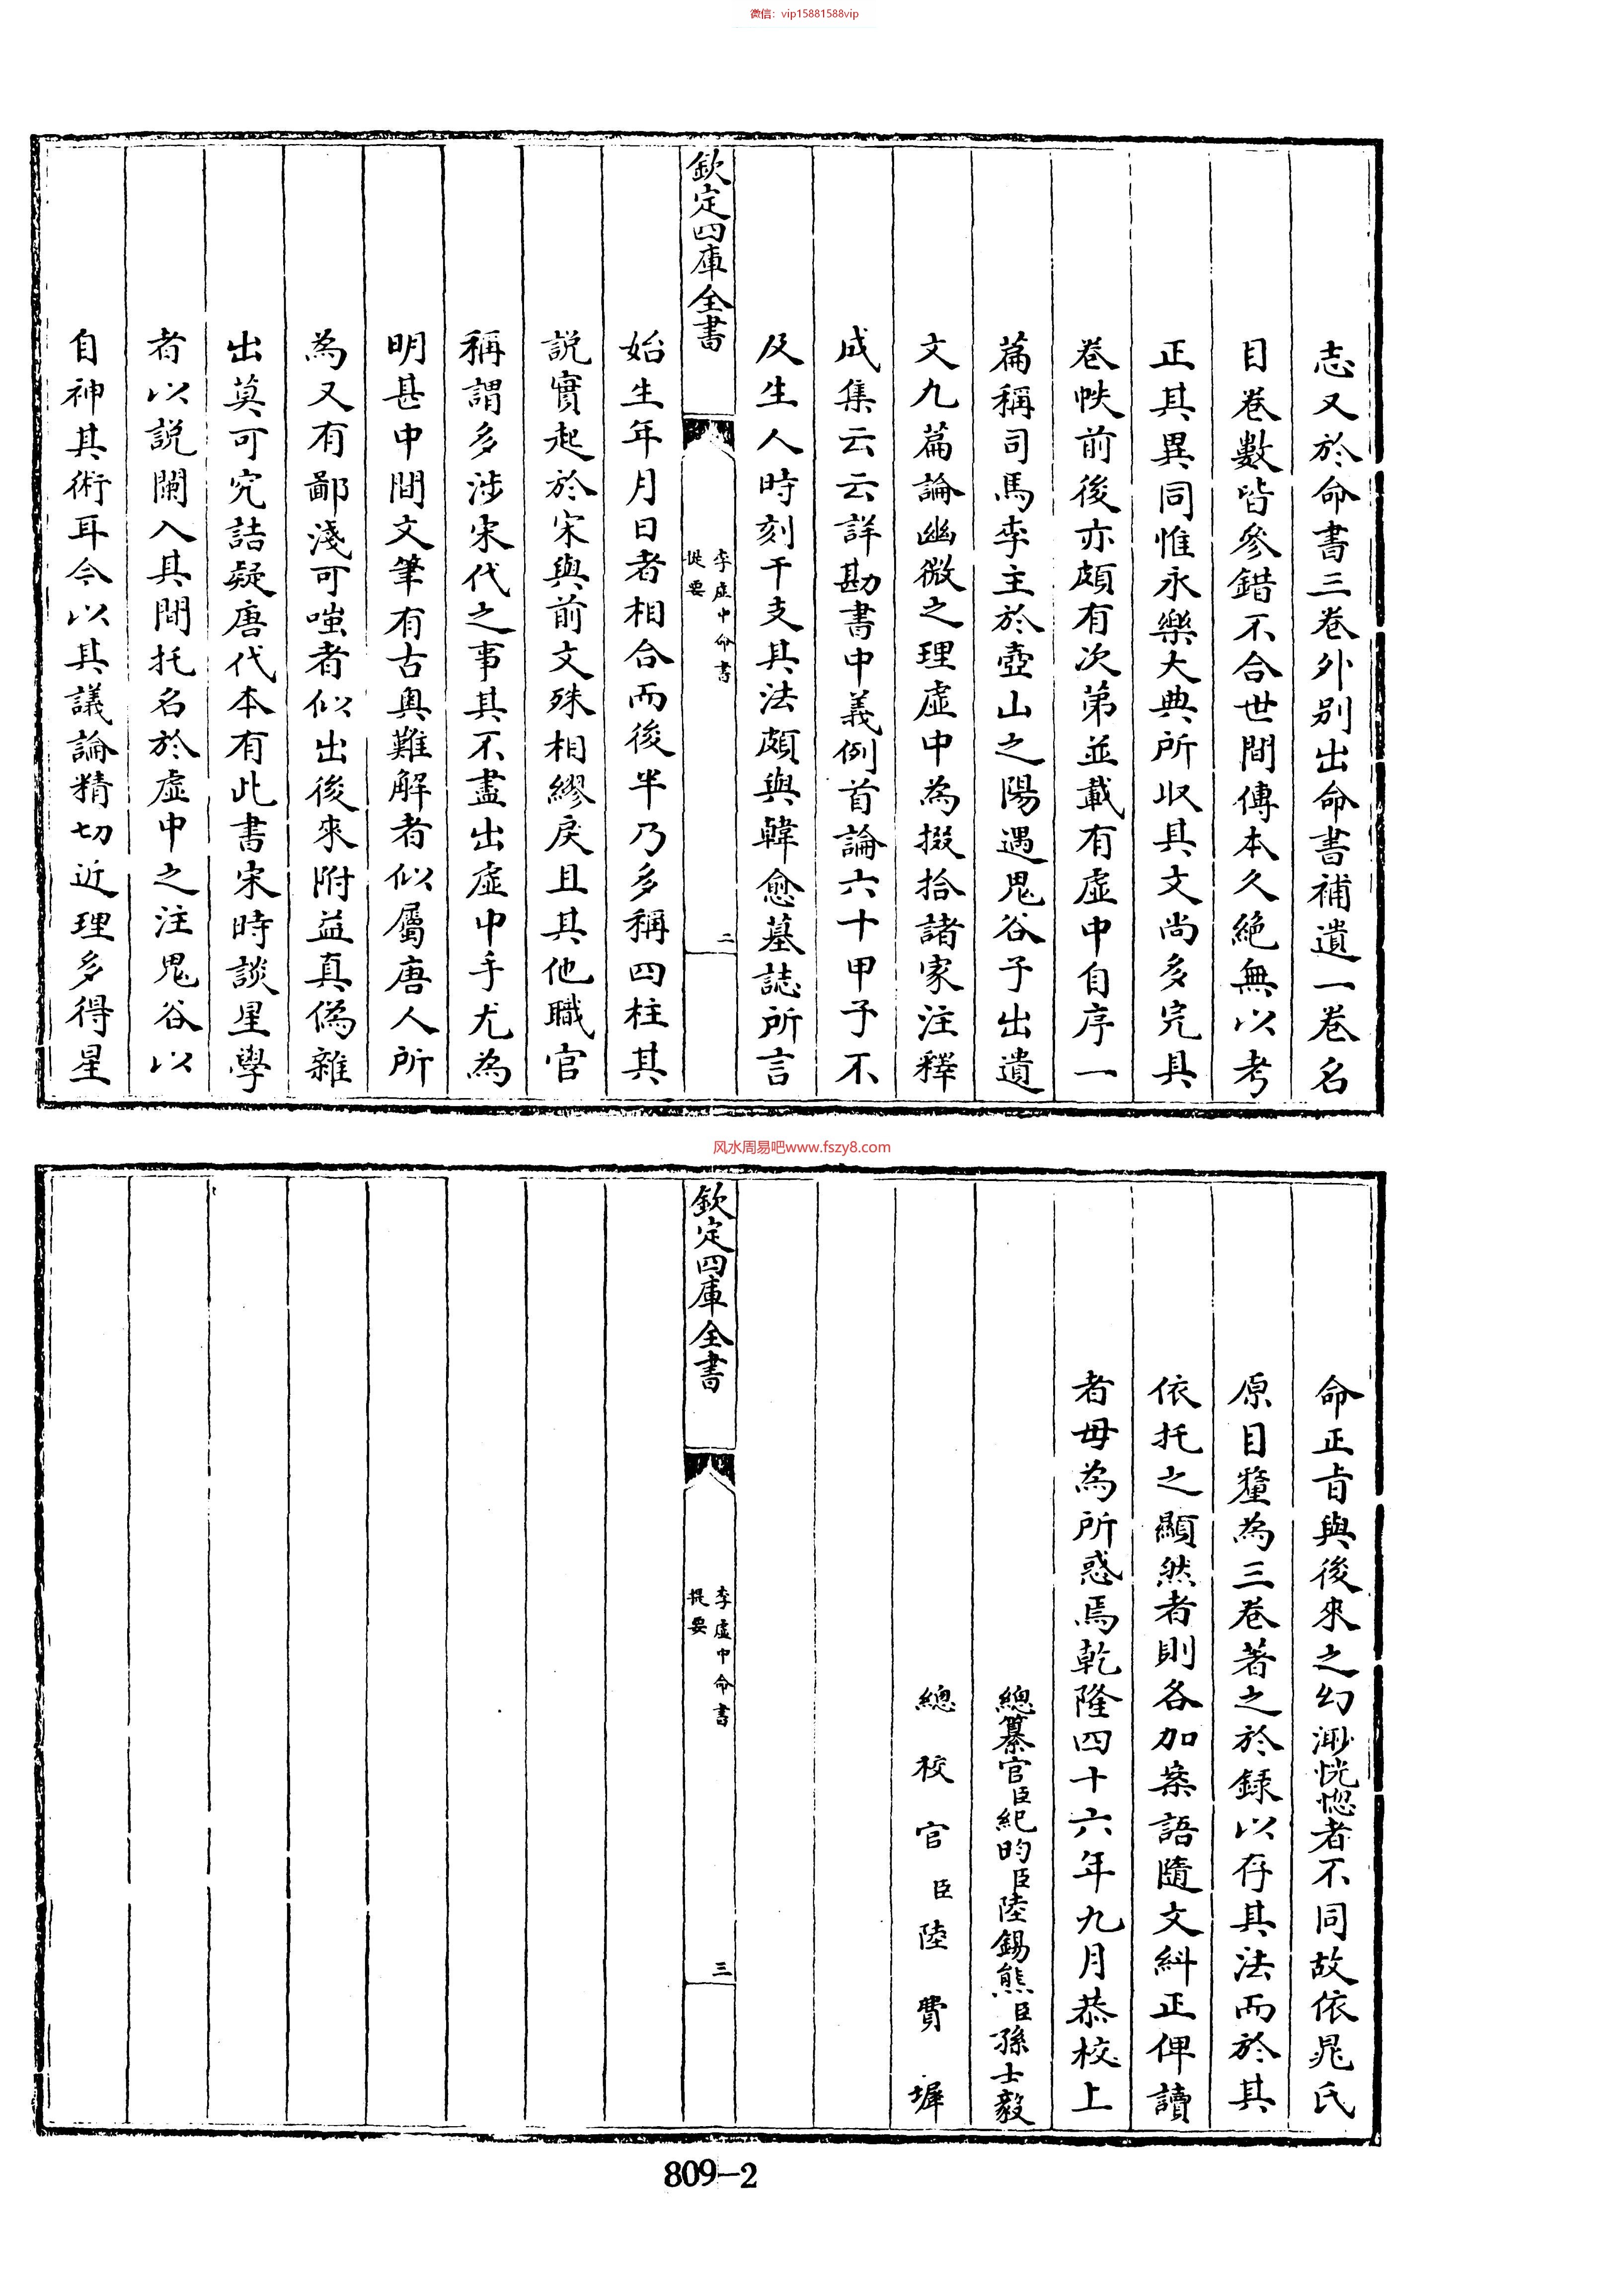 微信：vip15881588vip
志又於命書三卷外别出命書補遺一卷名
目卷數皆參錯不合世間傳本久絶無以考
正其異同惟永樂大典所收其文尚多完具
卷帙前後亦頗有次第並載有虛中自序一
篇稱司馬李主於壺山之陽遇鬼谷子出遺
文九篇論幽微之理虛中為掇拾諸家注釋
成集云云詳勘書中義例首論六十甲子不
及生人時刻干支其法頗與韓愈墓誌所言
欽定四庫全書
李虛中命書
提要
二
始生年月日者相合而後半乃多稱四柱其
説實起於宋與前文殊相繆戾且其他職官
稱謂多涉宋代之事其不盡出虛中手尤為
明甚中間文筆有古奥難解者似屬唐人所
為又有鄙淺可嗤者似出後來附益真偽雜
出莫可究詰疑唐代本有此書宋時談星學
者以説闌入其間托名於虛中之注鬼谷以
自神其術耳今以其議論精切近理多得星
风水周易吧www.fszy8.com
命正旨與後來之幻渺恍惚者不同故依晁氏
原目釐為三卷著之於録以存其法而於其
依托之顯然者則各加案語隨文糾正俾讀
者毋為所惑焉乾隆四十六年九月恭校上
總纂官臣紀昀臣陸錫熊臣孫士毅
總校官臣陸費墀
欽定四庫全書
李虛中命書
提要
三
809-2